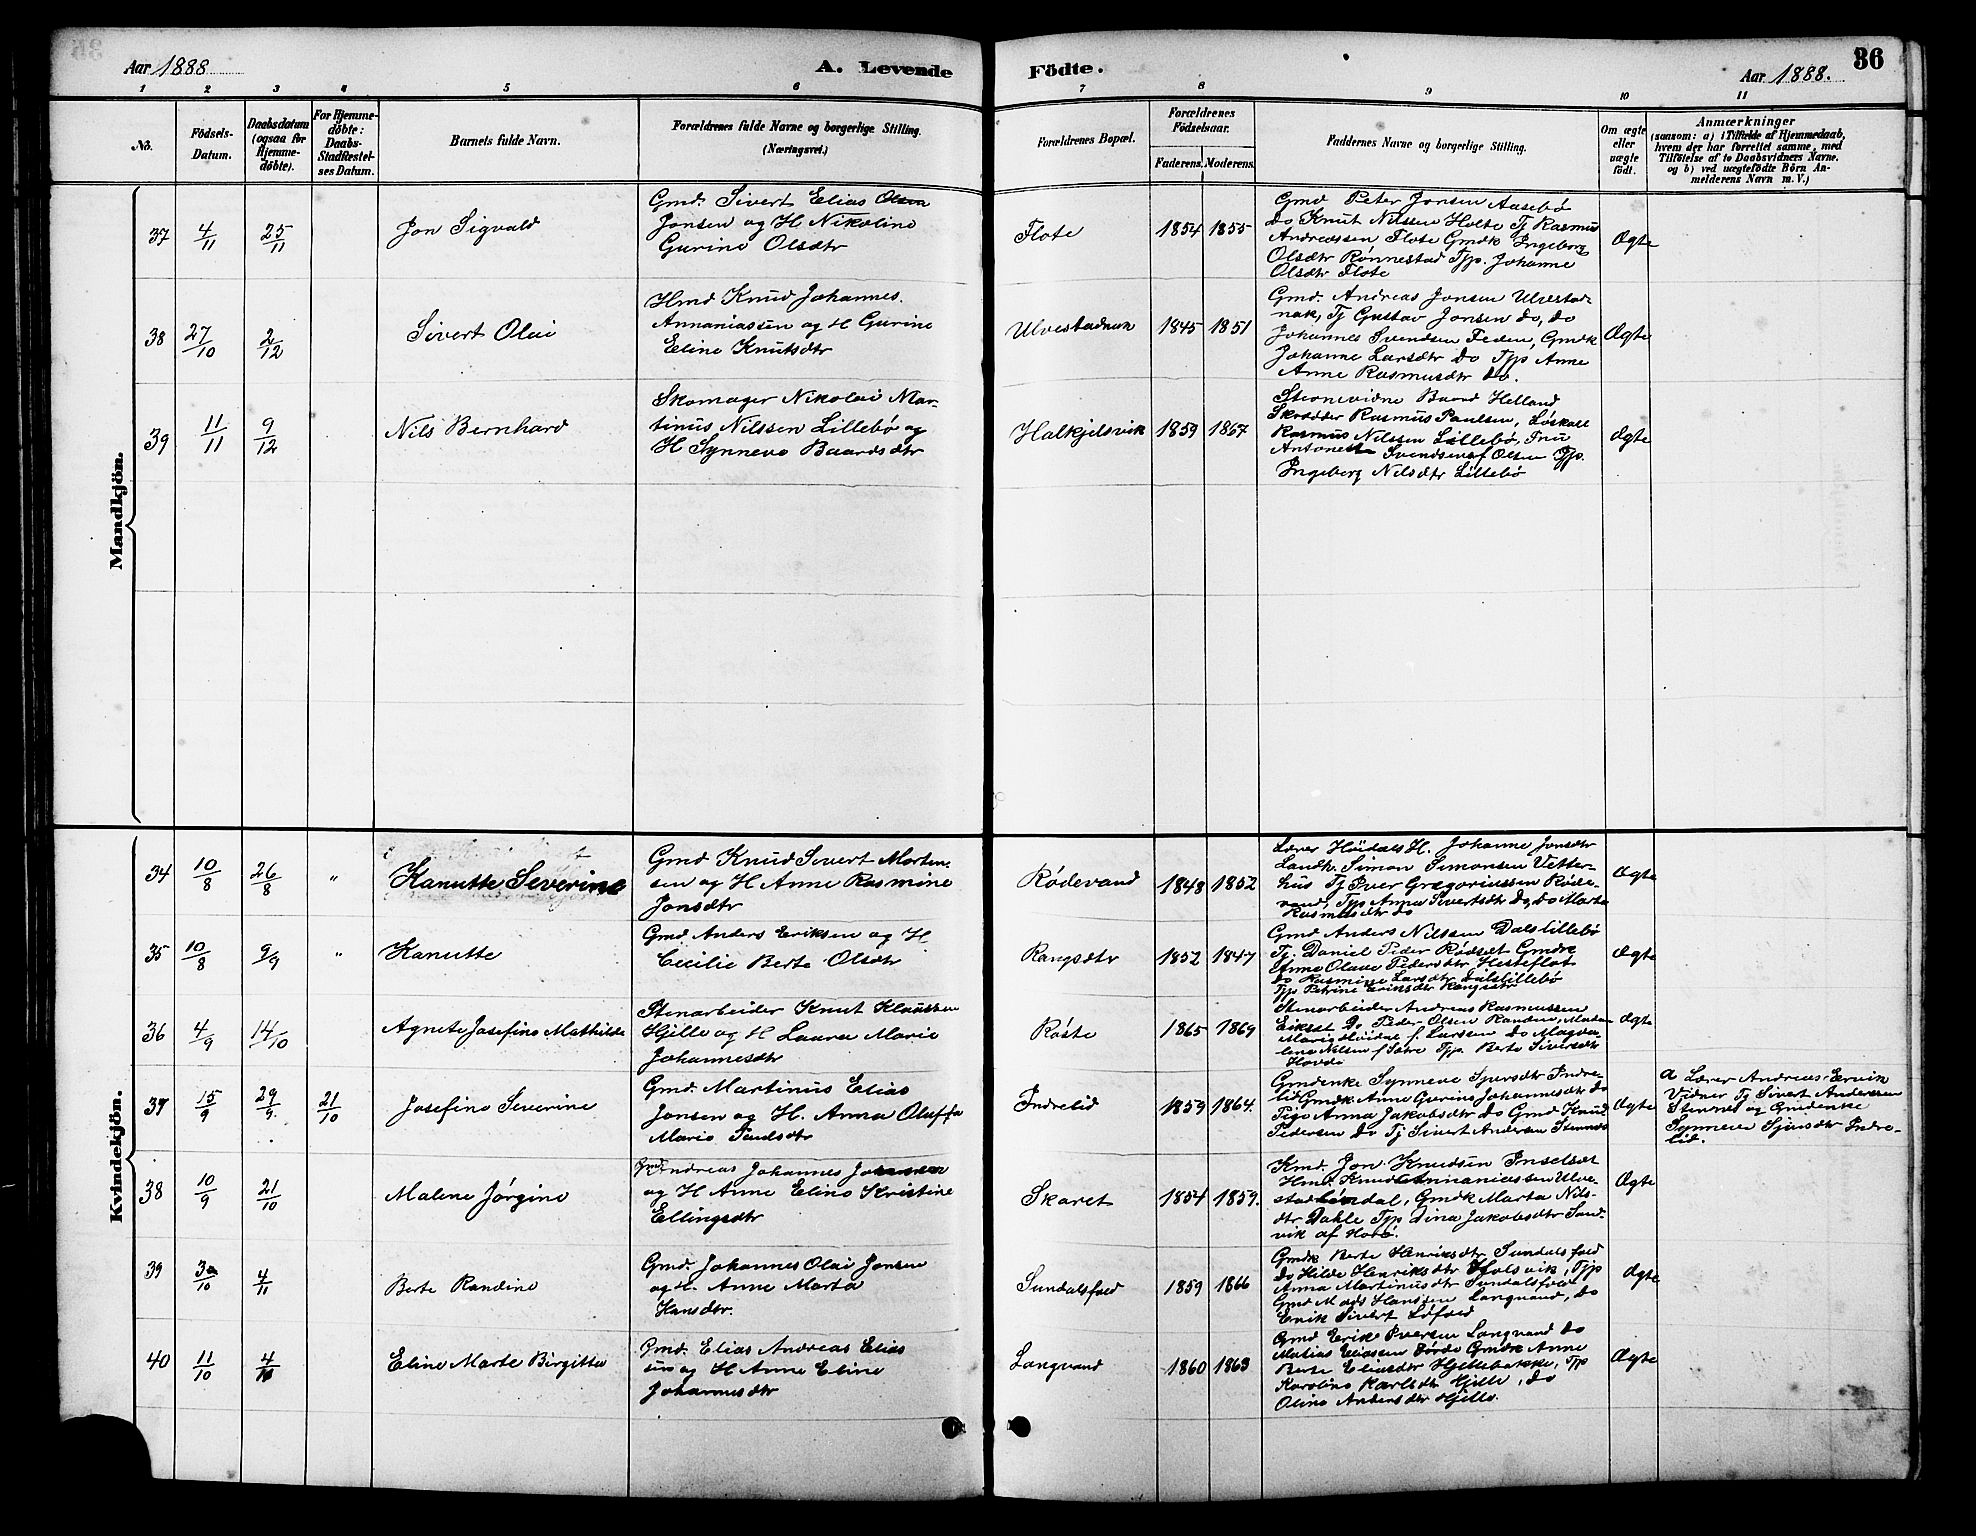 Aar 1888
A. Levende
Födte.
Aar 1888.
36
1
2
3
4
5
6
7
8
9
10
11
No.
Födsels-
Datum.
Daabsdatum
(ogsaa for
Hjemme-
döbte).
For Hjemme-
döbte:
Daabs-
Stadfæstel-
ses Datum.
Barnets fulde Navn.
Forældrenes fulde Navne og borgerlige Stilling.
(Næringsvei.)
Forældrenes Bopæl.
Forældrenes
Födselsaar.
Faderens.
Moderens.
Faddernes Navne og borgerlige Stilling.
Om ægte
eller
uægte
födt.
Anmærkninger
(saasom: a) i Tilfælde af Hjemmedaab,
hvem der har forrettet samme, med
Tilföielse af to Daabsvidners Navne,
og b) ved uægtefödte Börn An-
melderens Navn m. V.)
Mandkjön.
37
4/11
25/11
Jon Sigvald
Gmd. Sivert Elias Olsen
Jonsen og H Nikoline
Gurine Olsdtr
Flote
1854
1855
Gmd Peter Jonsen Aasebö
do Knut Nilssen Holte Tj Rasmus
Andreassen Flote Gmdk Ingeborg
Olsdtr Rønnestad Tjp. Johanne
Olsdtr Flote
Ægte
38
27/10
2/12
Sivert Olai
Hmd Knud Johannes.
Annaniassen og H Gurine
Eline Knutsdtr
Ulvestadnak
1845
1851
Gmd. Andreas Jonsen Ulvestad
nak, Tj Gustav Jonsen do, do
Johannes Svendsen Feden, Gmdk
Johanne Larsdtr do Tjp Anne
Anne Rasmusdtr do.
Ægte
39
11/11
9/12
Nils Bernhard
Skomager Nikolai Mar-
tinus Nilssen Lillebø og
H Synneve Baardsdtr
Halkjelsvik
1859
1867
Baard Helland
Skrædder Rasmus Paulsen, Løskall
Rasmus Nilssen Lillebø, Fru
Antonette Svendsen af Olsen Tjp.
Ingeborg Nilsdtr Lillebø
Ægte
Kvindekjön.
34
10/8
26/8
"
Kanutte Severine
Gmd Knud Sivert Morten-
sen og H Anne Rasmine
Jonsdtr
Rødevand
1848
1852
Lærer Höidals H. Johanne Jonsdtr
Landh. Simon Simonsen Vetter-
hus Tj Iver Gregoriussen Røde-
vand, Tjp Anna Sivertsdtr do, do Marta
Rasmusdtr do
Ægte
35
10/8
9/9
"
Kanutte
Gmd Anders Eriksen og H
Cecilie Berte Olsdtr
Rangsdtr
1852
1847
Gmd Anders Nilssen Dalslillebø
Tj. Daniel Peder Rødset Gmdk
Anne Olave Pedersdtr Hesteflot
do Rasmine Larsdtr Dalslillebø
Tjp Petrine Eriksdtr
Ægte
36
4/9
14/10
Agnete Josefine Mathilde
Stenarbeider Knut Klaussen
Hjelle og H Laura Marie
Johannesdtr
Røste
1865
1869
Stenarbeider Andreas Rasmussen
Eikset Do Peder Olsen Randen, Madam
Marie f. Larssen do Magda
lena Nilsen f Sætre Tjp. Berte Sivertsdtr
Hovde
Ægte
37
15/9
29/9.
21/10
Josefine Severine
Gmd. Martinus Elias
Jonsen og H. Anna Oluffa
Marie
Indrelid
1859
1864.
Gmdenke Synneve Sjursdtr Indre-
lid Gmdk Anne Gurine Johannesdtr do
Pige Anna Jakobsdtr do Gmd Knud
Pedersen do Tj Sivert Andersen Stennes
Ægte
a Lærer Andreas Ervik
Vidner Tj Sivert Andersen
Stennes og Gmdenke
Synneve Sjursdtr Indre-
lid.
38
10/9
21/10
Malene Jørgine
Gmd Andreas Johannes
og H Anne Eline Kristine
Ellingsdtr
Skaret
1854
1859.
Kmd. Jon Knudsen Inselset
Hmd. Knud Annaniassen Ulve-
stad Gmdk Marta Nils-
dtr Dahle Tjp Dina Jakobsdtr Sand-
vik af
Ægte
39
30/10
4/11
Berte Randine
Gmd. Johannes Olai Jonsen
og H. Anne Marta
Hansdtr.
Sundalsfoed
1859
1866
Gmdk Berte Henriksdtr Sundalsfoed
do Hilde Henriksdtr Tjp
Anna Martinusdtr Sundalsfoed
Gmd Mads Hanssen Langvand, do
Enik Sivert
Ægte
40
11/10
4/11
Eline Marte Birgitte
Gmd. Elias Andreas Elias
sen og H Anne Eline
Johannesdtr
Langvand
1860
1863
Gmd Erik Iversen Langvand do
Matias Eliassen Førde Gmdk Anne
Berte Eliasdtr Hjellebakke, Tjp
Karoline Karlsdtr Hjelle, do
Oline Andersdtr Hjelle.
Ægte